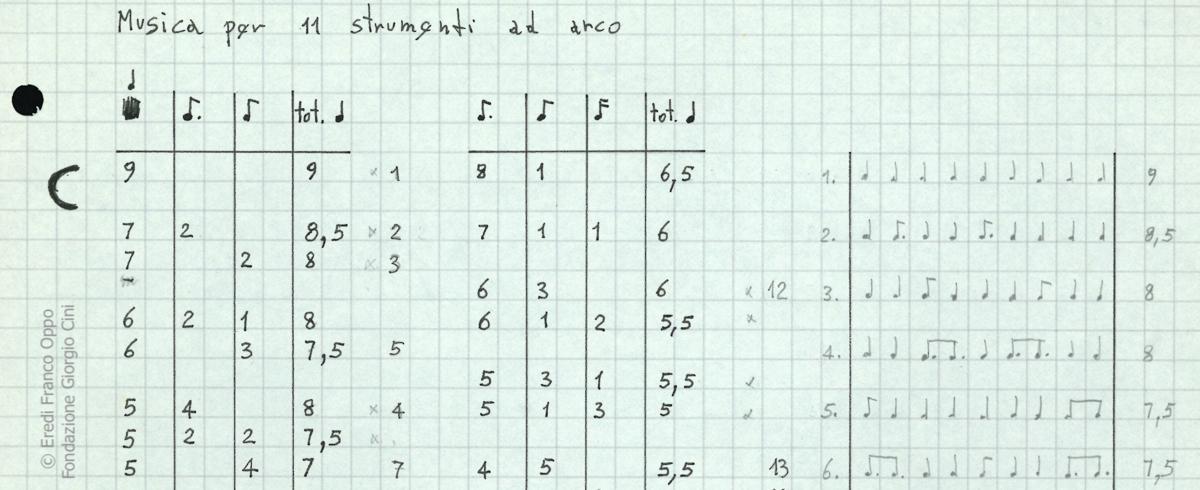 Musica per 11 strumenti ad arco
♩
♪. ♪ tot. ♩ ♪. ♪ ♬ tot. ♩
9 9 × 1 8 1 6,5 1. ♩ ♩ ♩ ♩ ♩ ♩ ♩ ♩ ♩ 9
7 2 8,5 × 2 7 1 1 6 2. ♩ ♪. ♩ ♩ ♪. ♩ ♩ ♩ ♩ 8,5
7 2 8 × 3
6 3 6 × 12 3. ♩ ♩ ♪ ♩ ♩ ♩ ♪ ♩ ♩ 8
6 2 1 8 6 1 2 5,5 ×
6 3 7,5 5 4. ♩ ♩ ♫. ♩ ♫. ♩ ♩ 8
5 3 1 5,5 ×
5 4 8 × 4 5 1 3 5 × 5. ♪ ♩ ♩ ♩ ♩ ♩ ♩ ♫ 7,5
5 2 2 7,5 ×
5 4 7 7 4 5 5,5 13 6. ♫. ♩ ♩ ♪ ♩ ♩ ♫. 7,5
© Eredi Franco Oppo
Fondazione Giorgio Cini